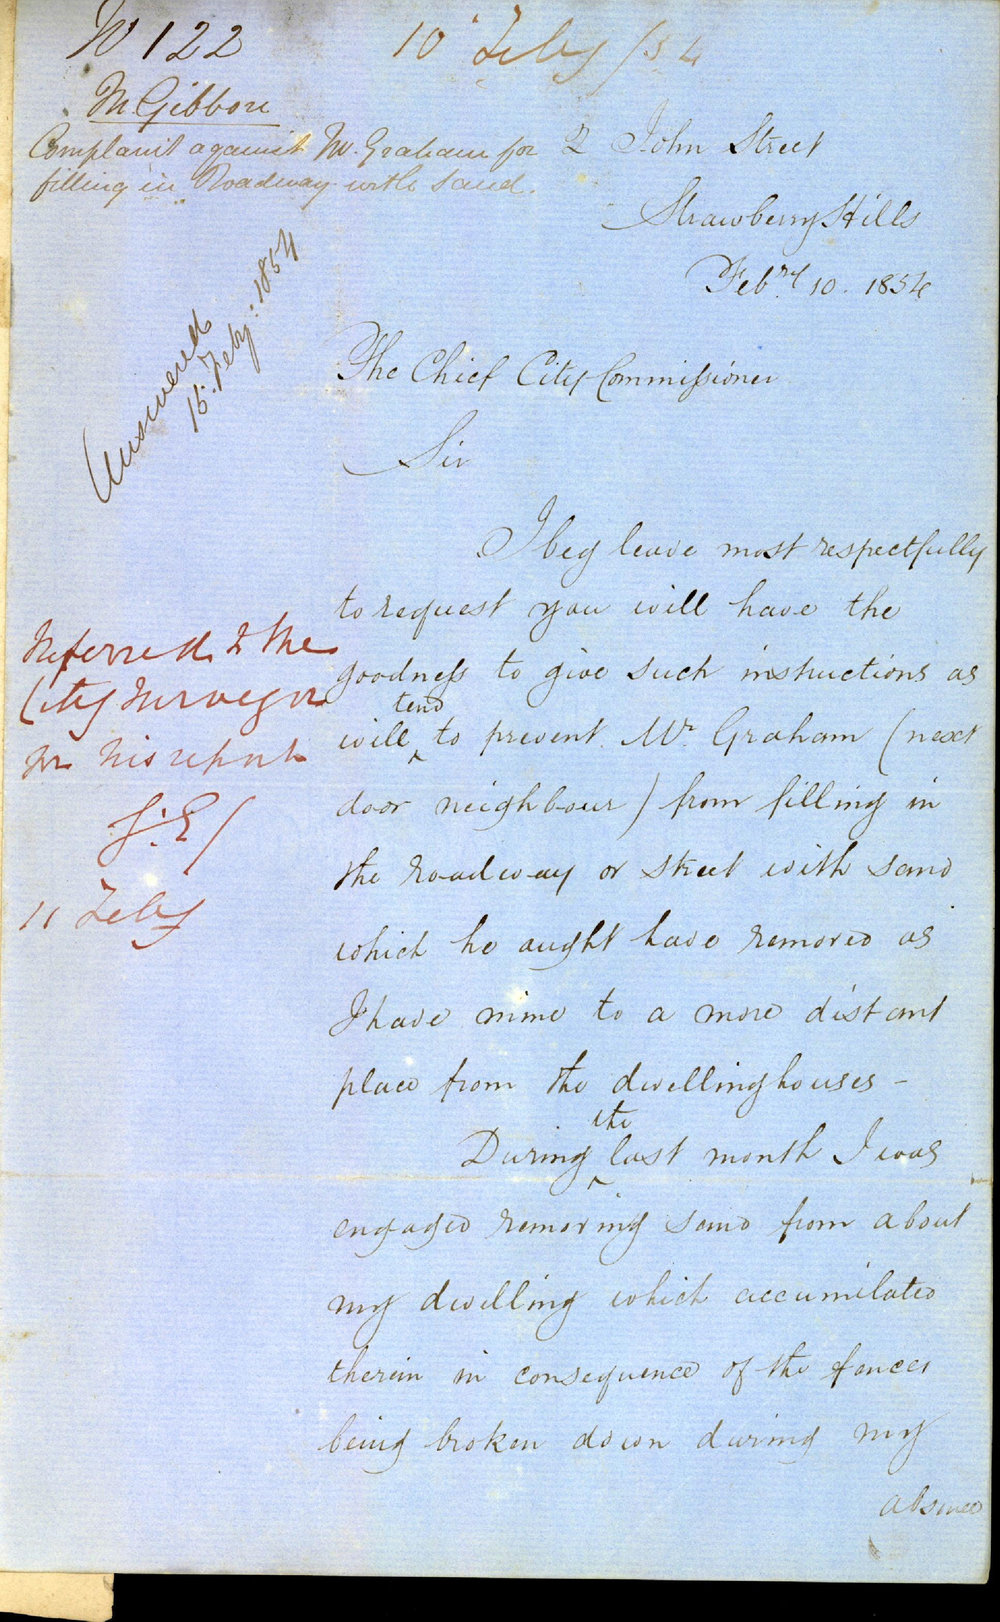 No 122
10 Feby /54
McGibbon
Complaint against Mr. Graham for
filling in Roadway with sand.
2 John Street
Strawberry Hills
Febry 10. 1854
Answered
15. Feby: 1854
The Chief City Commissioner
Sir
I beg leave most respectfully
to request you will have the
goodness to give such instructions as
will tend to prevent Mr Graham (next
door neighbour) from filling in
the roadway or street with sand
which he aught have removed as
I have mine to a more distant
place from the dwelling houses -
During the last month I was
engaged removing sand from about
my dwelling which accumilated
therein in consequence of the fences
being broken down during my
absence
Referred to the
City Surveyor
for his report
11 Feby